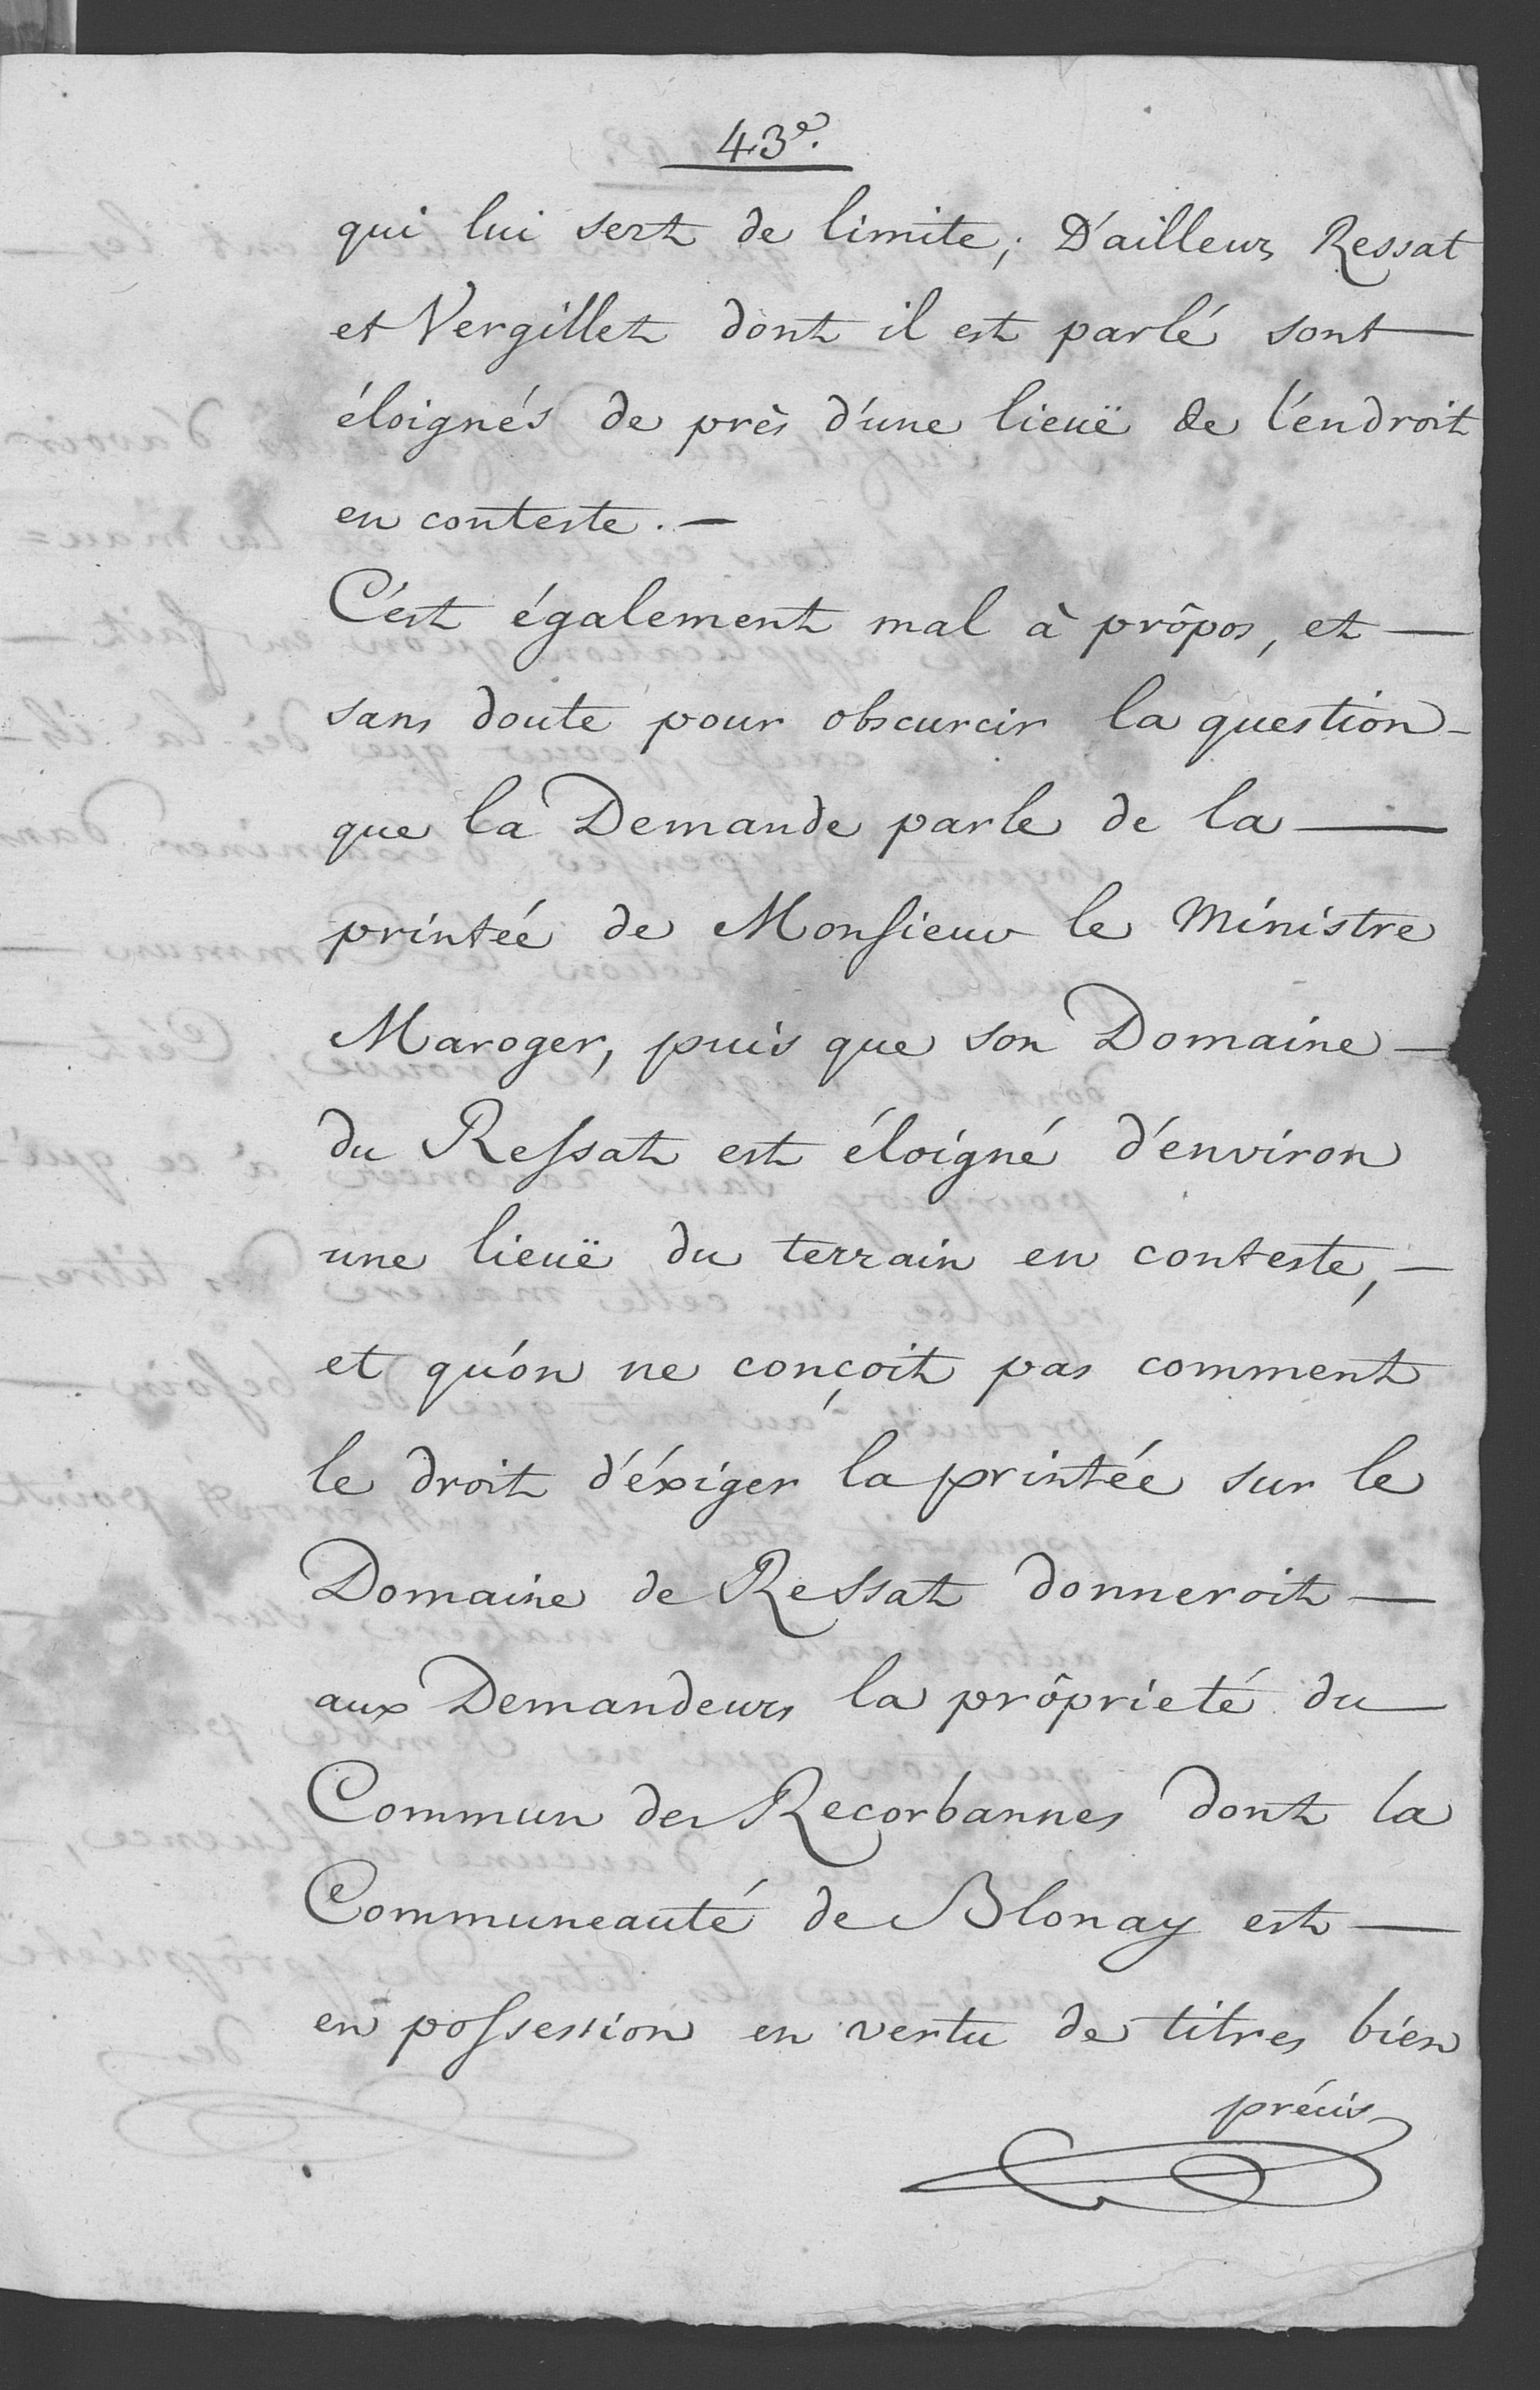 43e.
qui lui sert de limite; D'ailleurs Ressat
et Vergillet dont il est parlé sont —
éloignés de près d'une lieuë de l'endroit
en conteste. —
C'est également mal à prôpos, et —
sans doute pour obscurcir la question -
que la Demande parle de la —
printée de Monsieur le Ministre
Maroger, puis que son Domaine —
du Ressat est éloigné d'environ
une lieuë du terrain en conteste, —
et qu'on ne conçoit pas comment
le droit d'éxiger la printée sur le
Domaine de Ressat donneroit —
aux Demandeurs la prôprieté du —
Commun des Recorbannes dont la
Communeauté de Blonay est —
en possession en vertu de titres bien
précis